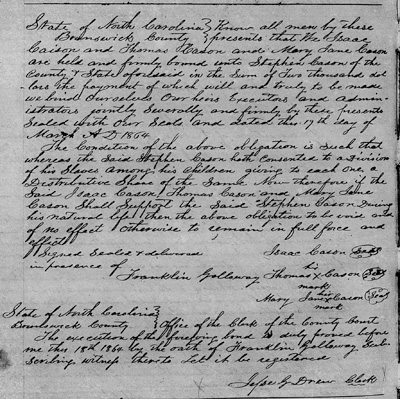 State of North Carolina } Know all men by these
Brunswick County } presents that We Isaac
Caison and Thomas Cason and Mary Jane Cason
are held and firmly bound unto Stephen Cason of the
County & State aforesaid in the Sum of Two thousand dol-
lars the payment of which will and truly to be made
we bind Ourselves Our heirs Executors and admin-
istrators jointly Severally and firmly by these presents
Sealed with Our Seals and dated this 17th day of
March A D 1864
The Condition of the above obligation is Such that
whereas the Said Stephen Cason hath Consented to a division
of his Slaves among his Children giving to each One, a
Distributive Share of the Same Now therefore if the
Said Isaac Cason, Thomas Cason and Mary Jane
Cason Shall Support the Said Stephen Cason During
his natural life then the above obligation to be void and
of no effect otherwise to remain in full force and
effect
Signed Sealed & delivered Isaac Cason Seal
in presence of his
Franklin Galloway Thomas X Cason Seal
mark
Mary Jane X Cason Seal
mark
State of North Carolina }
Brunswick County } Office of the Clerk of the County Court
The execution of the foregoing bond is duly proved before
me this 18th 1864 by the oath of Franklin Galloway Sub-
scribing witness thereto Let it be registered
Jesse G Drew Clerk